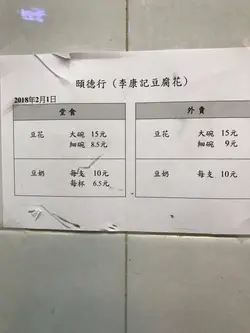 頤德行（李康記豆腐花）
2018年2月1日
堂食
豆花 大碗 15元
細碗 8.5元
豆奶 每支 10元
每杯 6.5元
外賣
豆花 大碗 15元
細碗 9元
豆奶 每支 10元